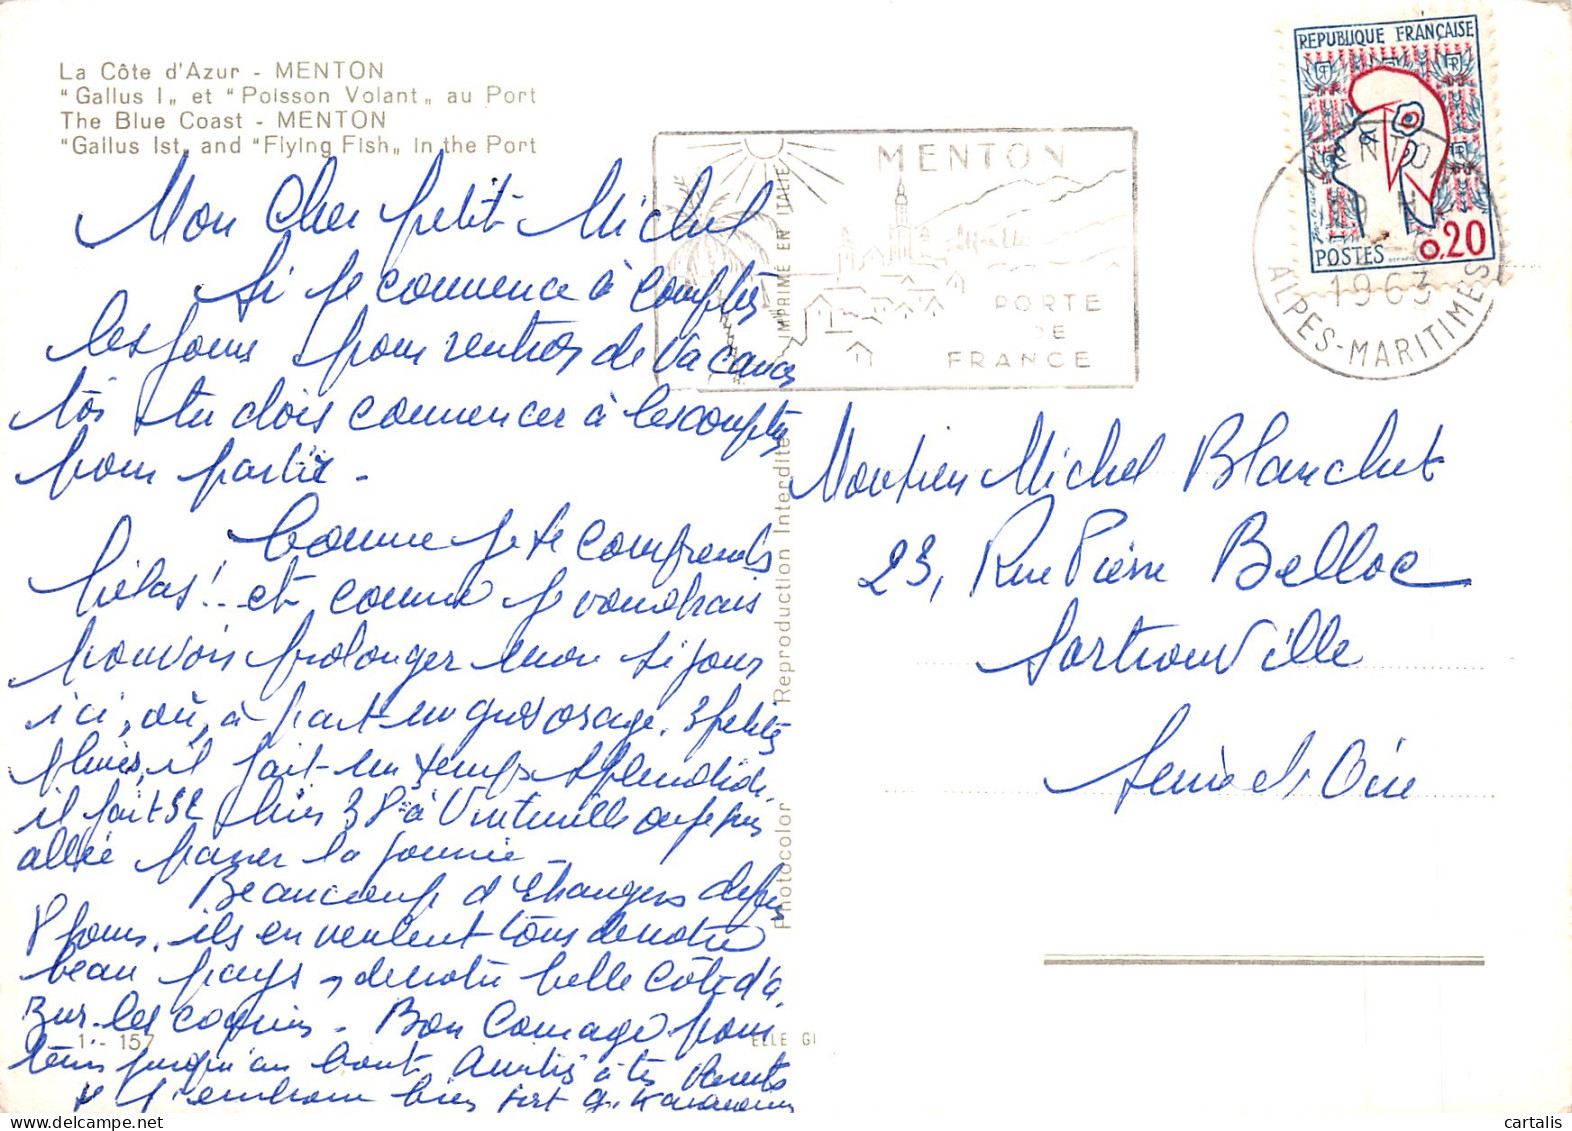 La Côte d'Azur - MENTON
"Gallus I„ et "Poisson Volant„ au Port
The Blue Coast - MENTON
"Gallus Ist„ and "Flying Fish„ in the Port
Mon Cher petit Michel
Si je commence à compter
les jours pour rentrer de vacances
toi tu dois commencer à les compter
pour partir -
Comme je te comprends
hélas! .. et comme je voudrais
pouvoir prolonger mon séjour
ici, où, à part un gros orage, 3 petites
pluies, il fait un temps splendide.
il fait 32 hier 38° à Vintimille où je suis
allée passer la journée -
Beaucoup d'étrangers depuis
8 jours, ils en veulent tous de notre
beau pays, de notre belle Côte d'A
zur. les coquins - Bon Courage pour
tenir jusqu'au bout Amitiés à tes Parents
je t'embrasse bien fort
1 - 157
IMPRIMÉ EN ITALIE
Reproduction Interdite
Photocolor
ELLE GI
MENTON
PORTE
DE
FRANCE
REPUBLIQUE FRANÇAISE
POSTES 0,20
MENTON
1963
ALPES-MARITIMES
Monsieur Michel Blanchet
23, Rue Pierre Belloc
Sartrouville
Seine et Oise
cartalis | www.delcampe.net